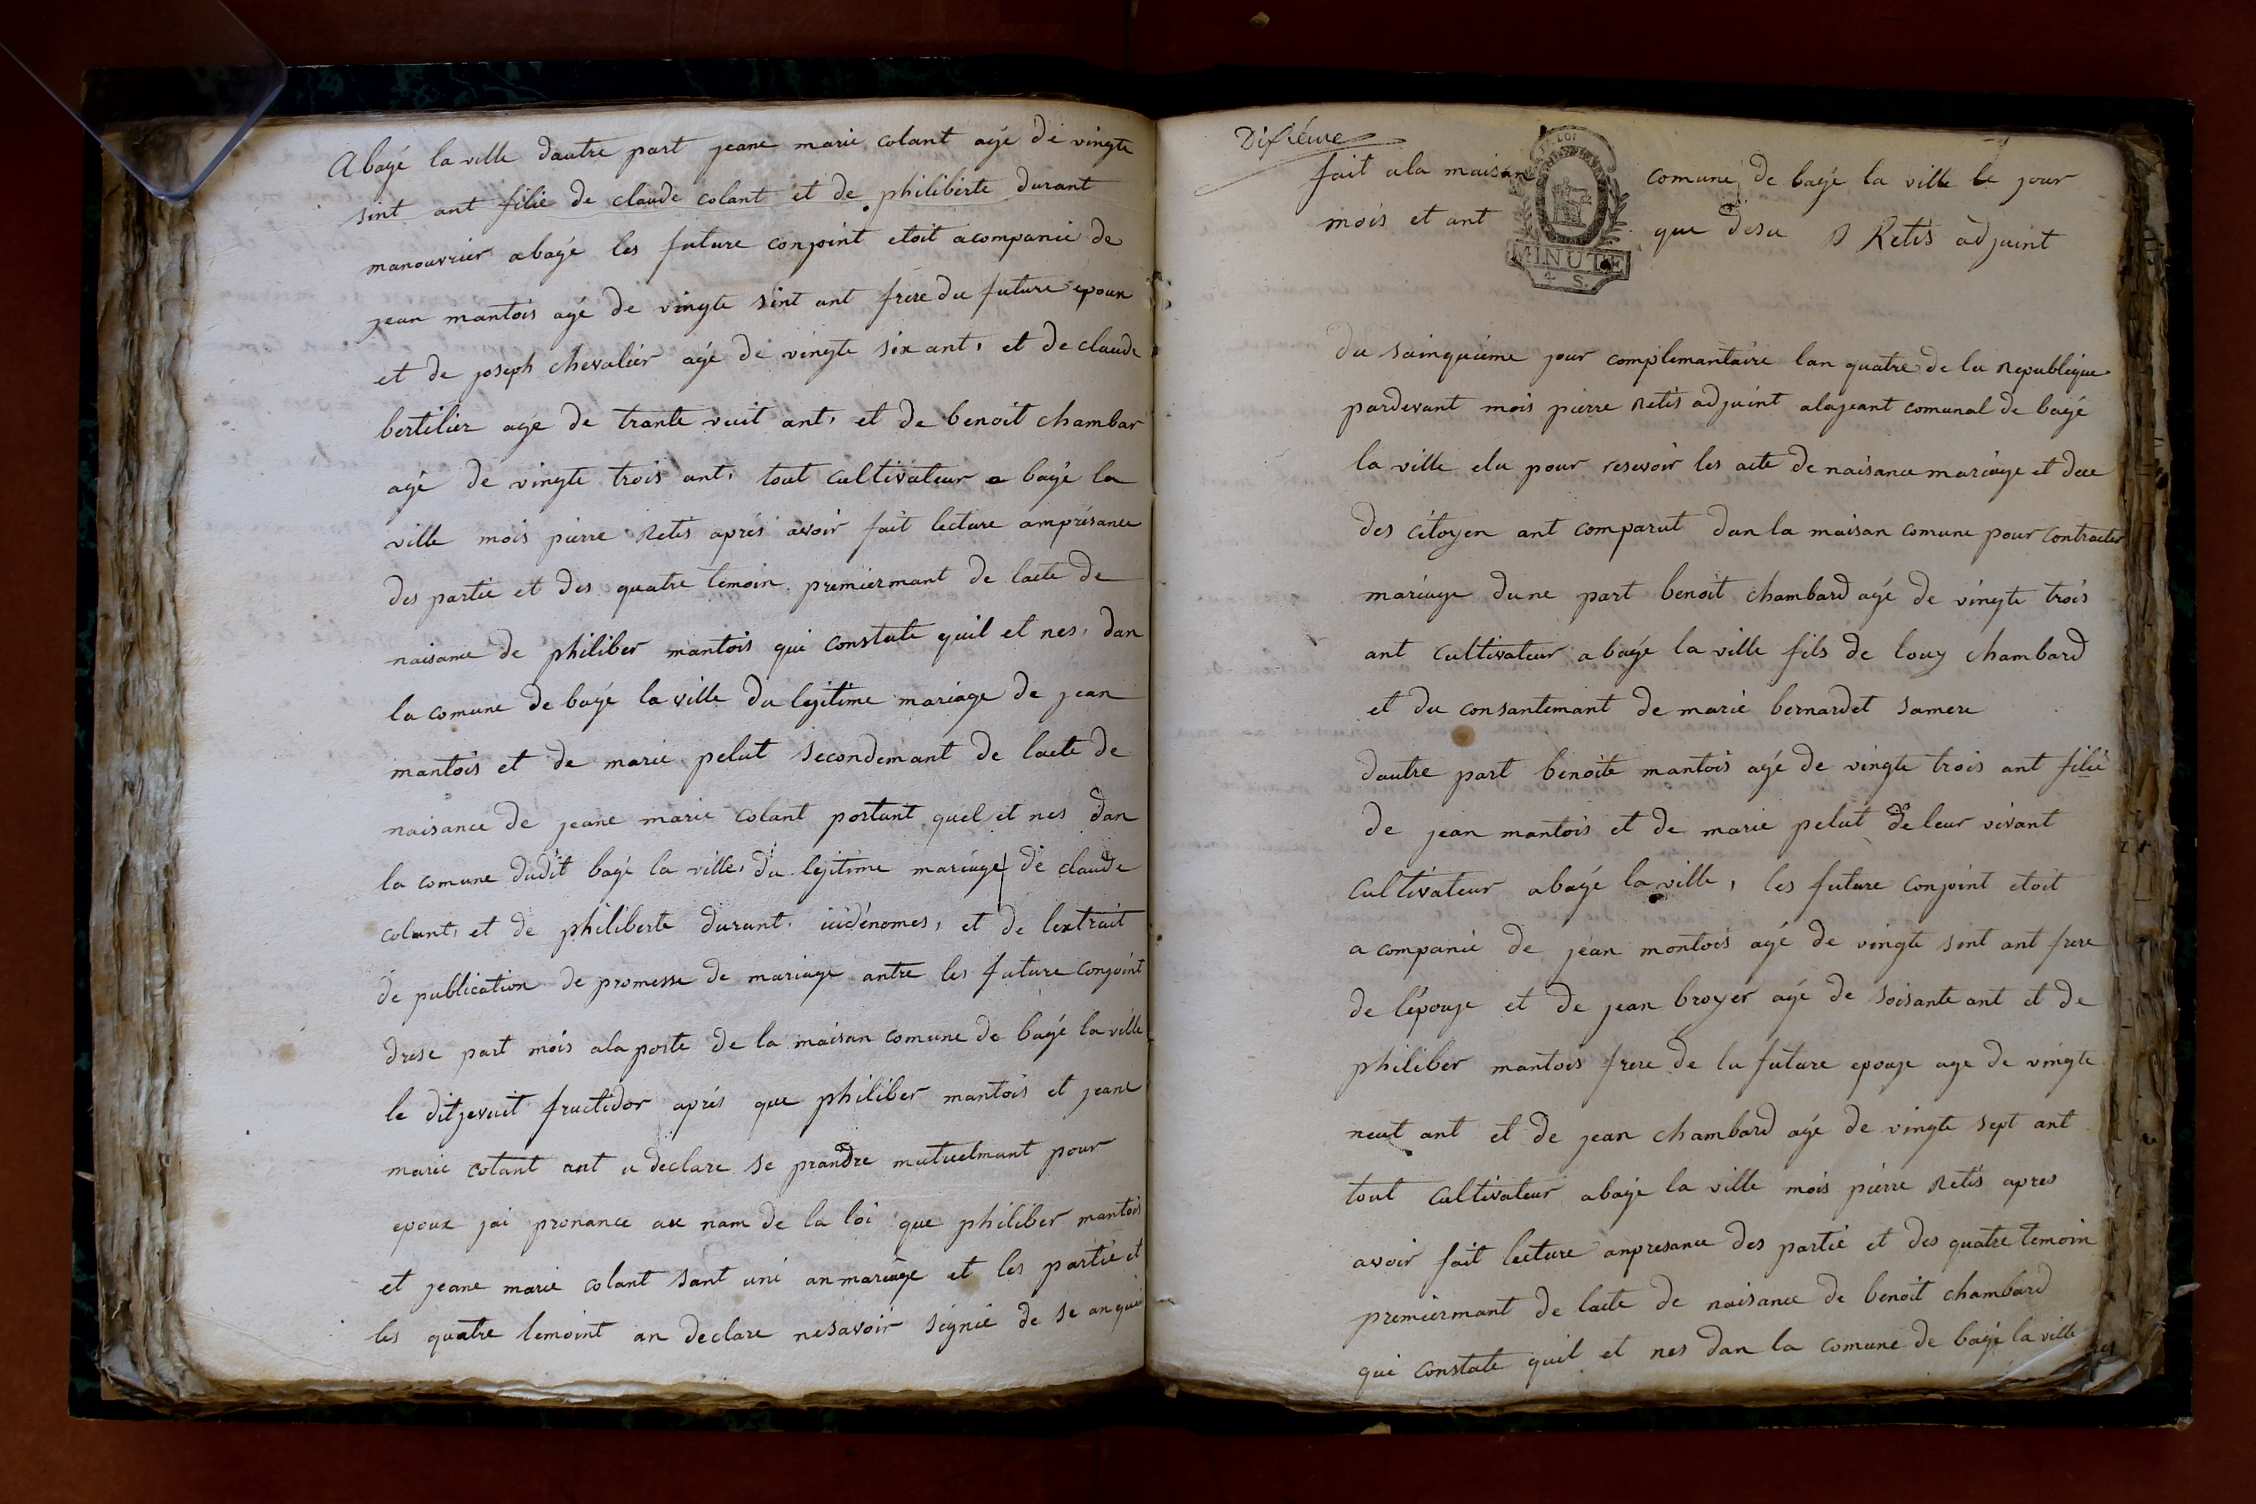 Abagé la ville dautre part jeane marie colant agé de vingte
sint ant filie de claude colant et de philiberte durant
manouvrier abagé les future conjoint etoit acompanié de
jean mantois agé de vingte sint ant frere du future epoux
et de joseph chevalier agé de vingte six ant, et de claude
bertilier agé de trante vuit ant, et de benoit chambar
agé de vingte trois ant, tout cultivateur a bagé la
ville mois pierre Retis aprés avoir fait lecture amprésance
des partie et des quatre temoin premiermant de lacte de
naisance de philiber mantois qui constate quil et nes, dan
la comune de bagé la ville du legitime mariage de jean
mantois et de marie pelut secondemant de lacte de
naisance de jeane marie colant portant quel et nes dan
la comune dudit bagé la ville, du legitime mariage de claude
colant, et de philiberte durant, iidénomes, et de lextrait
de publication de promesse de mariage antre les future conjoint
drese part mois ala porte de la maisan comune de bagé la ville
le ditzevuit fructidor aprés que philiber mantois et jeane
marie colant ant a declare se prandre mutuelmant pour
epoux jai pronance au nam de la loi que philiber mantois
et jeane marie colant sant uni an mariage et les partie et
les quatre temoint an declare nesavoir signié de se anquis
fait ala maisan comune de bagé la ville le jour
mois et ant que desu P Retis adjuint
LA LOI
MINUTE
4 S.
du sainquiéme jour complemantaire lan quatre de la Republique
pardevant mois pierre Retis adjuint alajeant comunal de bagé
la ville elu pour resevoir les acte de naisance mariage et dee
des citoyen ant comparut dan la maisan comune pour contracter
mariage dune part benoit chambard agé de vingte trois
ant cultivateur abagé la ville fils de louy chambard
et du consantemant de marie bernardet samere
dautre part benoite mantois agé de vingte trois ant filié
de jean mantois et de marie pelut de leur vivant
cultivateur abagé la ville, les future conjoint etoit
a companié de jean montois agé de vingte sint ant frere
de l'épouse et de jean broyer agé de soisante ant et de
philiber mantois frere de la future epouse age de vingte
neut ant et de jean chambard agé de vingte sept ant
tout cultivateur abagé la ville mois pierre Retis apres
avoir fait lecture anpresance des partié et des quatre temoin
premiermant de lacte de naisance de benoit chambard
qui constate quil et nes dan la comune de bagé la ville